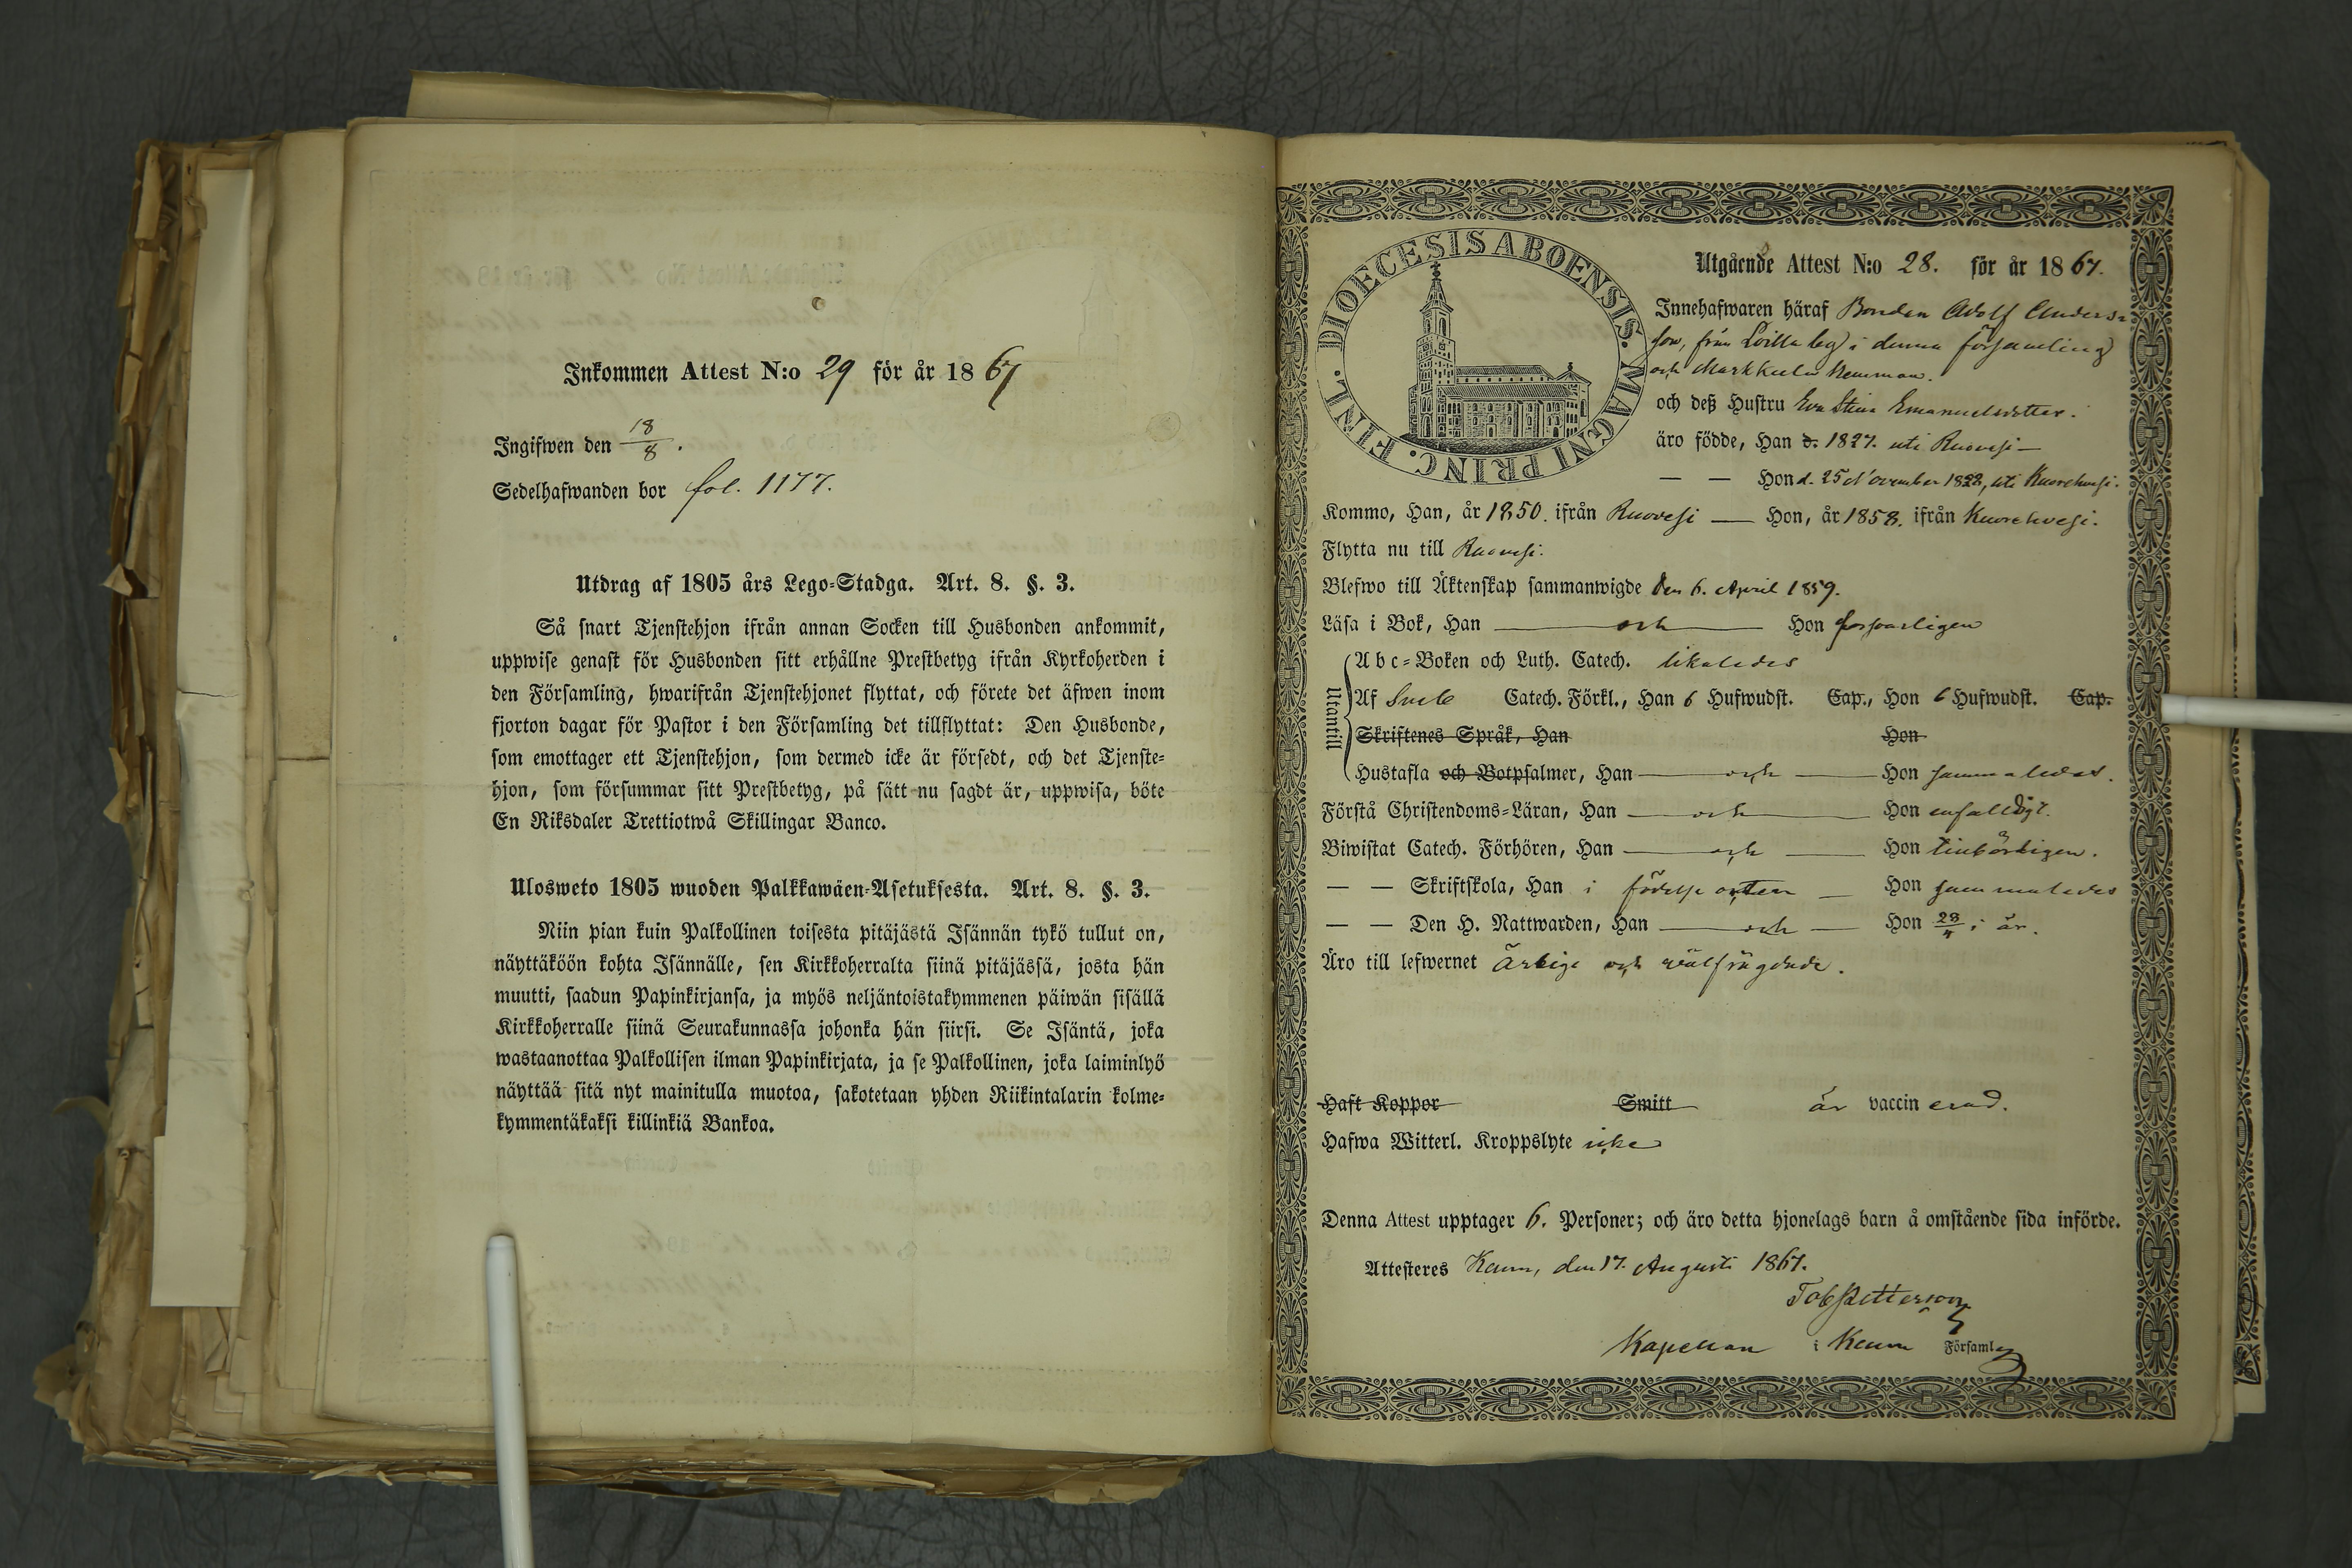 Inkommen Attest N:o 29 för år 1867
Ingifwen den 18/8.
Sedelhafwanden bor fol. 1177.
Utdrag af 1805 års Lego-Stadga. Art. 8. §. 3.
Så snart Tjenstehjon ifrån annan Socken till Husbonden ankommit,
uppwise genast för Husbonden sitt erhållne Prestbetyg ifrån Kyrkoherden i
den Församling, hwarifrån Tjenstehjonet flyttat, och förete det äfwen inom
fjorton dagar för Pastor i den Församling det tillflyttat: Den Husbonde,
som emottager ett Tjenstehjon, som dermed icke är försedt, och det Tjenste-
hjon, som försummar sitt Prestbetyg, på sätt nu sagdt är, uppwisa, böte
En Riksdaler Trettiotwå Skillingar Banco.
Ulosweto 1805 wuoden Palkkawäen-Asetuksesta. Art. 8. §. 3.
Niin pian kuin Palkollinen toisesta pitäjästä Isännän tykö tullut on,
näyttäköön kohta Isännälle, sen Kirkkoherralta siinä pitäjässä, josta hän
muutti, saadun Papinkirjansa, ja myös neljäntoistakymmenen päiwän sisällä
Kirkkoherralle siinä Seurakunnassa johonka hän siirsi. Se Isäntä, joka
wastaanottaa Palkollisen ilman Papinkirjata, ja se Palkollinen, joka laiminlyö
näyttää sitä nyt mainitulla muotoa, sakotetaan yhden Riikintalarin kolme-
kymmentäkaksi killinkiä Bankoa.
DIOECESIS ABOENSIS. MAGNI PRINC. FINL.
Utgående Attest N:o 28. för år 1867.
Innehafwaren häraf Bonden Adolf Anders-
son, från by i denna församling
och Markkula Hemman.
och deß Hustru Eva Stina Emanuelsdotter.
äro födde, Han d. 1827. uti Ruovesi —
— — Hon d. 25 November 1828, uti Kuorehvesi.
Kommo, Han, år 1850. ifrån Ruovesi — Hon, år 1858. ifrån Kuorehvesi.
Flytta nu till Ruovesi.
Blefwo till Äktenskap sammanwigde den 6. April 1859.
Läsa i Bok, Han — och — Hon försvarligen
Utantill
Abc-Boken och Luth. Catech. likaledes
Af Catech. Förkl., Han 6 Hufwudst. Cap., Hon 6 Hufwudst. Cap.
Skriftenes Språk, Han Hon
Hustafla och Botpsalmer, Han — och — Hon sammaledes.
Förstå Christendoms-Läran, Han — och — Hon enfalldigt.
Biwistat Catech. Förhören, Han — och — Hon tillbörligen.
— — Skriftskola, Han i födelse orten — Hon sammaledes
— — Den H. Nattwarden, Han — och — Hon i år.
Äro till lefwernet ärlige och välfrägdade.
Haft Koppor Smitt är vaccinerad.
Hafwa Witterl. Kroppslyte icke
Denna Attest upptager 6. Personer; och äro detta hjonelags barn å omstående sida införde.
Attesteres Keuru, den 17. Augusti 1867.
Tob Petterson
Kapellan i Keuru Församl